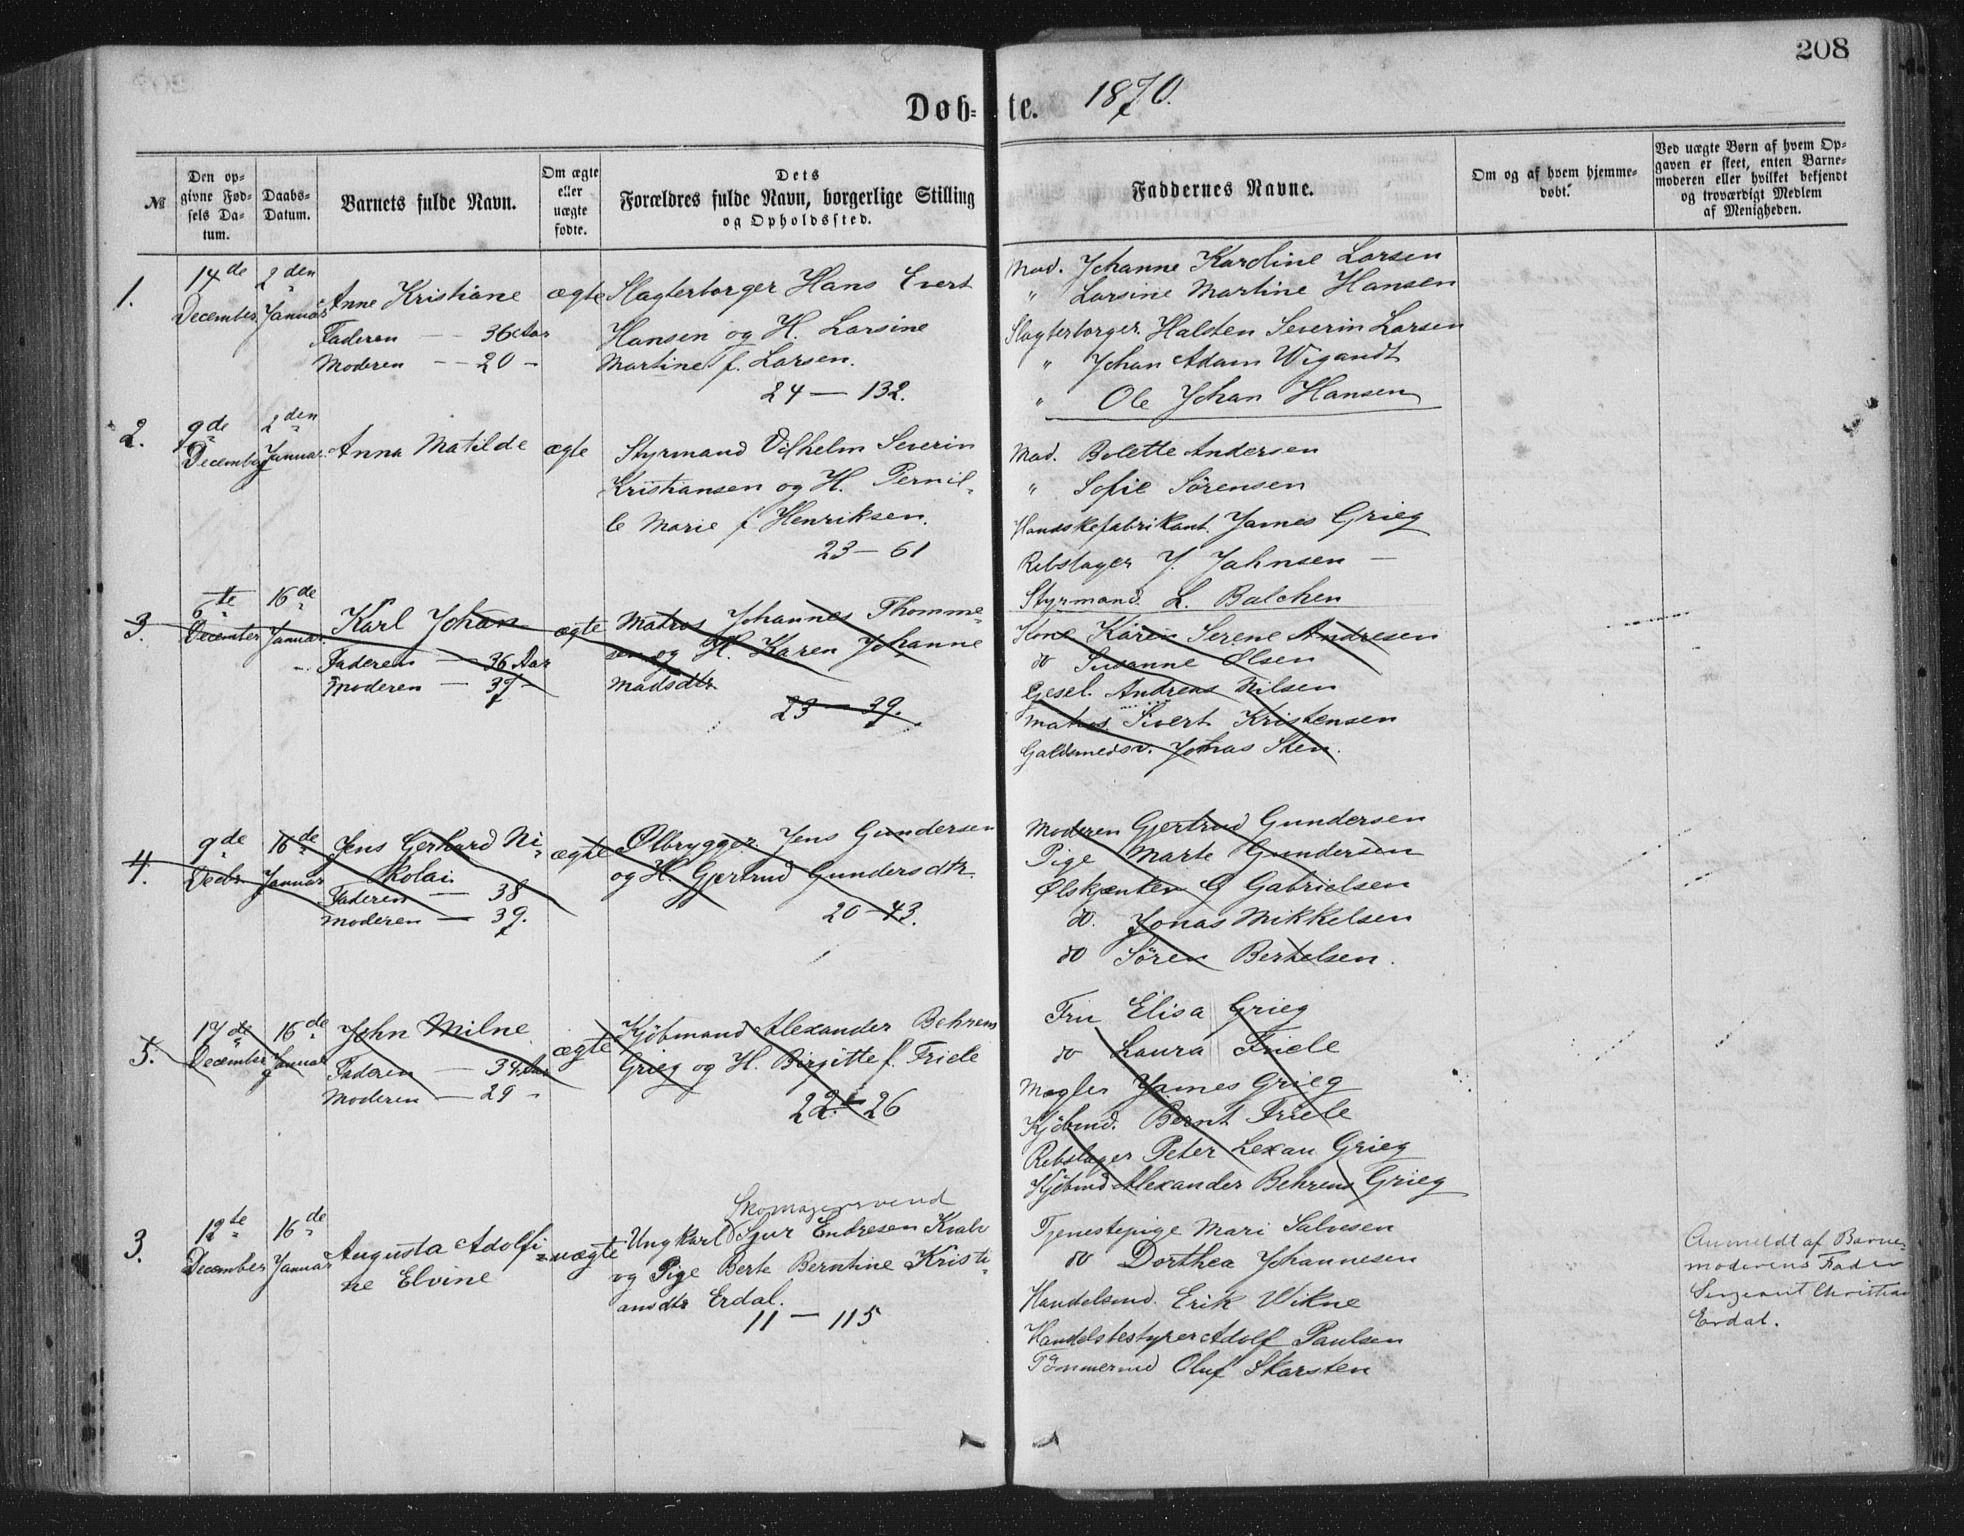 208
Døb-te. 1870.
№
Den op-
givne Fød-
sels Da-
tum.
Daabs-
Datum.
Barnets fulde Navn.
Om ægte
eller
uægte
fødte.
Dets
Forældres fulde Navn, borgerlige Stilling
og Opholdssted.
Faddernes Navne.
Om og af hvem hjemme-
døbt.
Ved uægte Børn af hvem Op-
gaven er skeet, enten Barne-
moderen eller hvilket bekjendt
og troværdigt Medlem
af Menigheden.
1.
14de
December
2den
Januar
Anne Kristiane
Faderen — 36 Aar
Moderen — 20 -
ægte
Slagterborger Hans Evert
Hansen og H. Larsine
Martine f. Larsen.
24 — 132.
Mad. Johanne Karoline Larsen
" Larsine Martine Hansen
Slagterborger Halsten Severin Larsen
" Johan Adam Wigandt
" Ole Johan Hansen
2.
9de
December
2den
Januar
Anna Matilde
ægte
Styrmand Vilhelm Severin
Kristiansen og H. Pernil-
le Marie f Henriksen.
23 — 61
Mad. Bolette Andersen
" Sofie Sørensen
Handskefabrikant James Grieg
Rebslager J. Jahnsen —
Styrmand L. Balchen
3.
6te
December
16de
Januar
Karl Johan
Faderen — 36 Aar
Moderen — 37 -
ægte
Matros Johannes Thomme-
sen og H. Karen Johanne
Madsdtr
23 — 39.
Kone Karen Serene Andresen
do Susanne Olsen
Gesel. Andreas Nilsen
Matros Sivert Kristensen
Guldsmedsv. Jonas Sten.
4.
9de
Decbr
16de
Januar
Jens Gerhard Ni-
kolai
Faderen — 38
Moderen — 39.
ægte
Ølbrygger Jens Gundersen
og H. Gjertrud Gundersdtr.
20 — 43.
Moderen Gjertrud Gundersen
Pige Marte Gundersen
Ølskjænker G Gabrielsen
do. Jonas Mikkelsen
do Søren Bertelsen.
5.
17de
December
16de
Januar
John Milne
Faderen — 34 Aar
Moderen — 29 -
ægte
Kjøbmand Alexander Behrens
Grieg og H. Birgitte f. Friele
22 — 26
Fru Elisa Grieg
do Laura Friele
Mægler James Grieg
Kjøbmd. Bernt Friele
Rebslager Peter Lexau Grieg
Kjøbmd Alexander Behrens Grieg
3.
12te
December
16de
Januar
Augusta Adolfi-
ne Elvine
uægte
Skomagersvend
Ungkarl Sjur Endresen Kvale
og Pige Berte Berntine Kristi-
ansdtr Erdal.
11 — 115
Tjenestepige Mari Salvesen
do Dorthea Johannesen
Handelsmd. Erik Vikne
Handelsbestyrer Adolf Paulsen
Tømmermd Oluf Skarsten
Anmeldt af Barne-
moderens Fader
Sergeant Christian
Erdal.